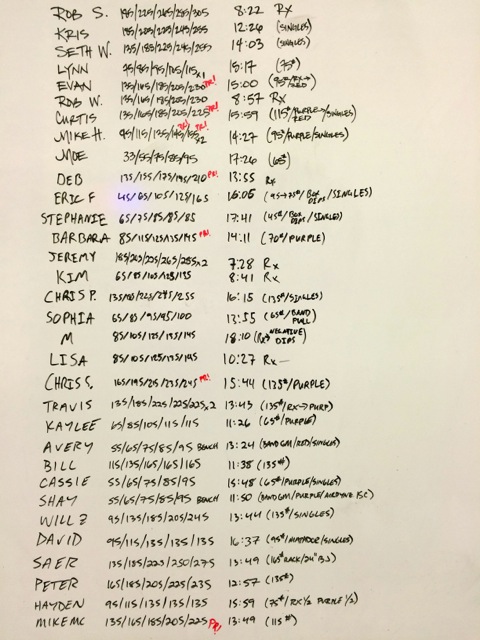 ROB S. 195/225/245/265/305 8:22 Rx
KRIS 12:26 (SINGLES)
SETH W. 135/185/225/245/255 14:03 (SINGLES)
LYNN 15:17 (75#)
EVAN 135/145/185/205/230 PR! 15:00 (95#/RX→RED)
ROB W. 135/165/185/205/230 8:57 Rx
CURTIS 135/165/185/205/225 PR! 15:59 (115#/PURPLE→RED/SINGLES)
MIKE H. 95/115/135/145/155x2 PR! PR! 14:27 (95#/PURPLE/SINGLES)
MOE 33/55/75/85/95 17:26 (65#)
DEB 135/155/175/195/210 PR! 13:55 Rx
ERIC F 45/65/105/125/165 16:05 (95→75#/BOX DIPS/SINGLES)
STEPHANIE 65/75/85/85/85 17:41 (45#/BOX DIPS/SINGLES)
BARBARA 85/115/125/135/145 PR! 14:11 (70#/PURPLE)
JEREMY 185/205/225/265/285x2 7:28 Rx
KIM 65/85/105/125/135 8:41 Rx
CHRIS P. 16:15 (135#/SINGLES)
SOPHIA 65/85/95/95/100 13:55 (65#/BAND PULL)
M 85/105/125/135/145 18:10 (Rx/NEGATIVE DIPS)
LISA 85/105/125/135/145 10:27 Rx
CHRIS S. 165/195/215/235/245 PR! 15:44 (135#/PURPLE)
TRAVIS 135/185/225/225/225x2 13:43 (135#/RX→PURP)
KAYLEE 65/85/105/115/115 11:26 (65#/PURPLE)
AVERY 55/65/75/85/95 BENCH 13:24 (BAND GM/RED/SINGLES)
BILL 115/135/165/165/165 11:38 (135#)
CASSIE 55/65/75/85/95 15:48 (65#/PURPLE/SINGLES)
SHAY 55/65/75/85/95 BENCH 11:50 (BAND GM/PURPLE/AIRDYNE 15C)
WILL Z 95/135/185/205/245 13:44 (135#/SINGLES)
DAVID 95/115/135/135/135 16:37
SAER 135/185/225/250/275 13:49 (165# RACK/24" BJ)
PETER 165/185/205/225/235 12:57 (135#)
HAYDEN 95/115/135/135/135 15:59 (75#/RX 1/2 PURPLE 1/2)
MIKE MC 135/165/185/205/225 PR! 13:49 (115#)